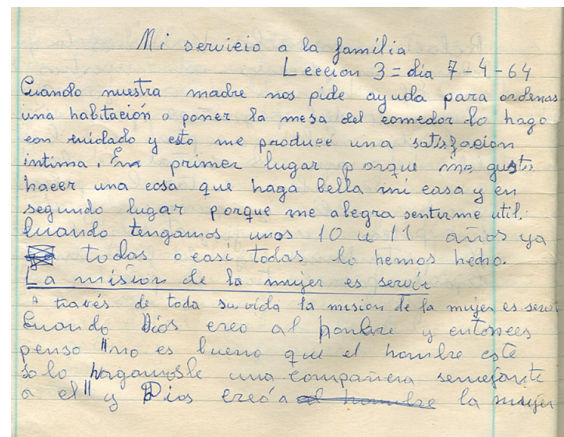 Mi servicio a la família
Leccion 3 = dia 7-4-64
Cuando nuestra madre nos pide ayuda para ordenas
una habitación o poner la mesa del comedor lo hago
con cuidado y esto me produce una satisfacion
intima. En primer lugar porque me gusta
hacer una cosa que haga bella mi casa y en
segundo lugar porque me alegra sentirme util.
Cuando tengamos unos 10 u 11 años ya
todas o casi todas lo hemos hecho.
La mision de la mujer es servir
A través de toda su vida la mision de la mujer es servir
Cuando Diós creo al hombre y entonces
penso "no es bueno que el hombre este
solo hagamosle una compañera semejante
a el" y Dios creó a el hombre la mujer